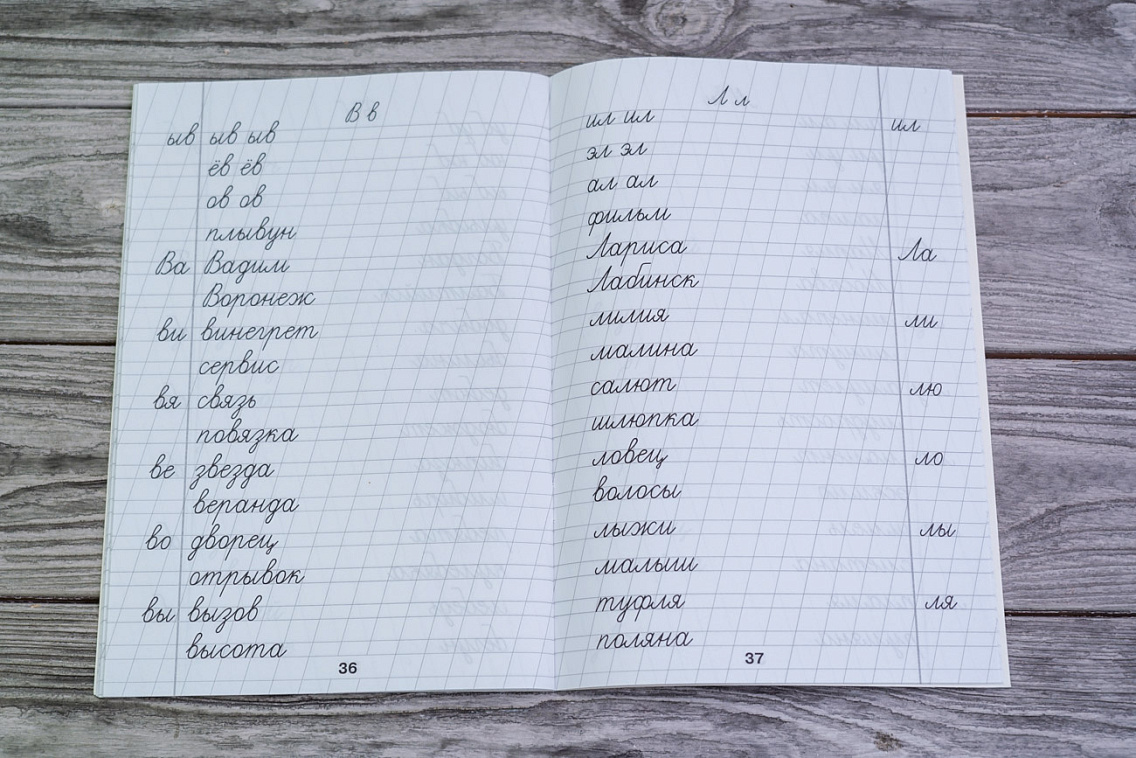 В в
ыв ыв ыв
ёв ёв
ов ов
плывун
Ва Вадим
Воронеж
ви винегрет
сервис
вя связь
повязка
ве звезда
веранда
во дворец
отрывок
вы вызов
высота
36
Л л
ил ил ил
эл эл
ал ал
фильм
Лариса Ла
Лабинск
лилия ли
малина
салют лю
шлюпка
ловец ло
волосы
лыжи лы
малыш
туфля ля
поляна
37